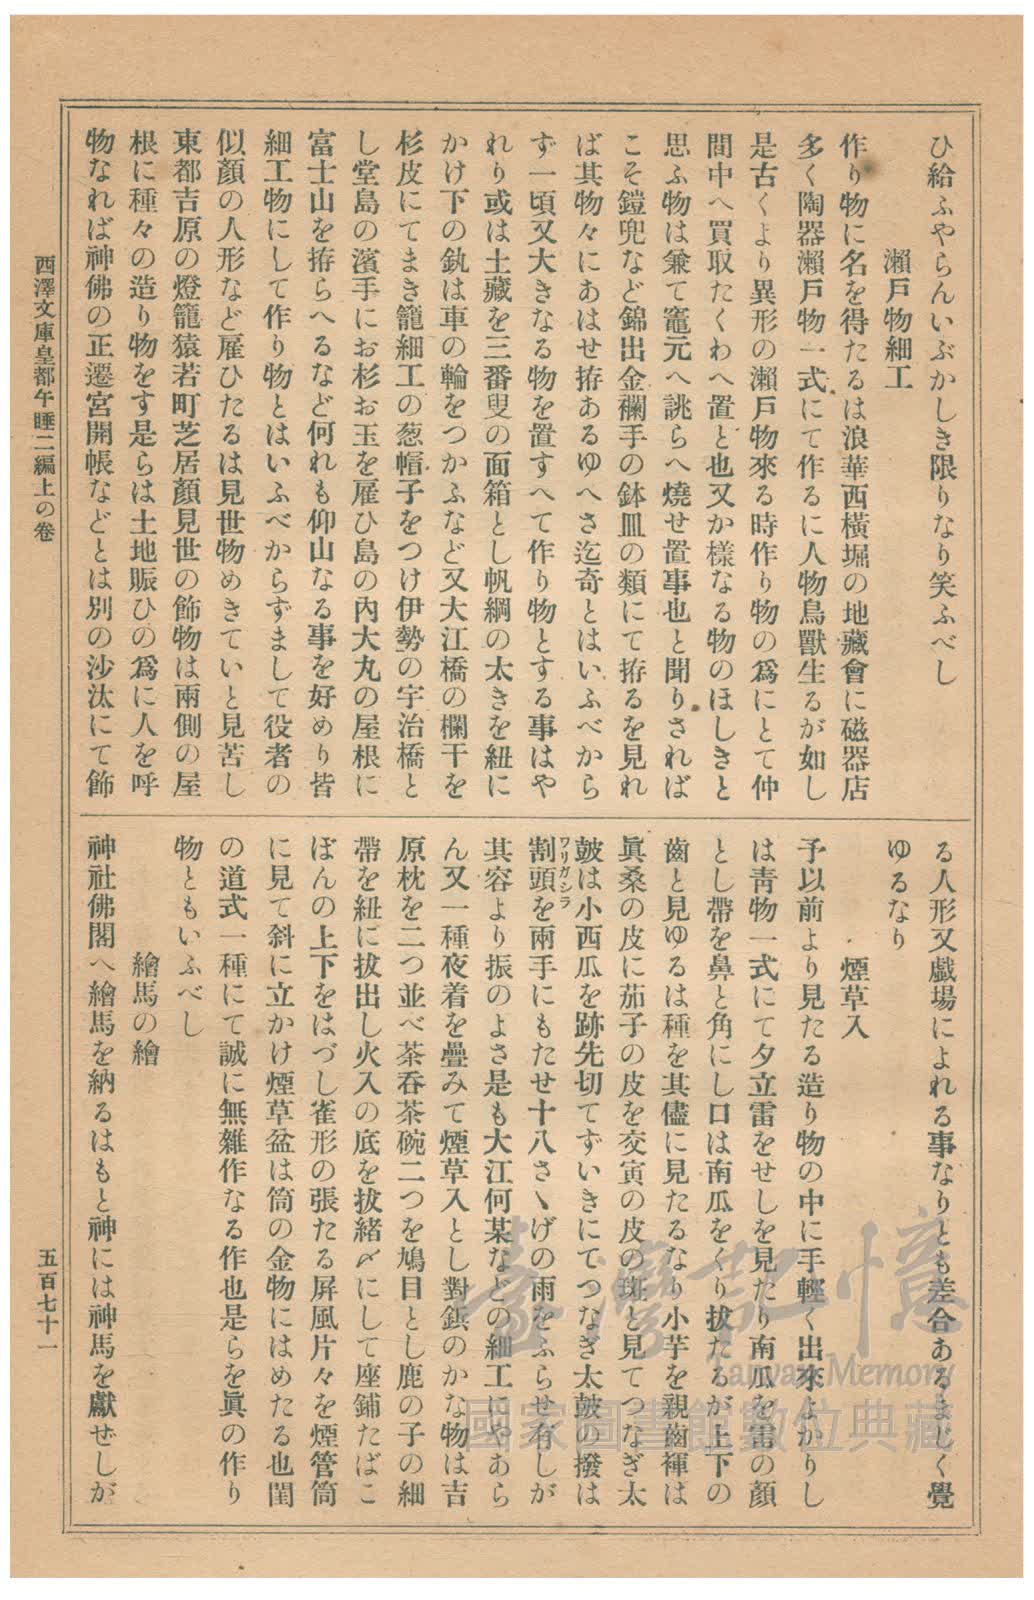 ひ給ふやらんいぶかしき限りなり笑ふべし
瀨戶物細工
作り物に名を得たるは浪華西橫堀の地藏會に磁器店
多く陶器瀨戶物一式にて作るに人物鳥獸生るが如し
是古くより異形の瀨戶物來る時作り物の爲にとて仲
間中へ買取たくわへ置と也又か樣なる物のほしきと
思ふ物は兼て竈元へ誂らへ燒せ置事也と聞りされば
こそ鎧兜など錦出金襴手の鉢皿の類にて拵るを見れ
ば其物々にあはせ拵あるゆへさ迄奇とはいふべから
ず一頃又大きなる物を置すへて作り物とする事はや
れり或は土藏を三番叟の面箱とし帆綱の太きを紐に
かけ下の釻は車の輪をつかふなど又大江橋の欄干を
杉皮にてまき籠細工の葱帽子をつけ伊勢の宇治橋と
し堂島の濱手にお杉お玉を雇ひ島の內大丸の屋根に
富士山を拵らへるなど何れも仰山なる事を好めり皆
細工物にして作り物とはいふべからずまして役者の
似顏の人形など雇ひたるは見世物めきていと見苦し
東都吉原の燈籠猿若町芝居顏見世の飾物は兩側の屋
根に種々の造り物をす是らは土地賑ひの爲に人を呼
物なれば神佛の正遷宮開帳などとは別の沙汰にて飾
る人形又戲場によれる事なりとも差合あるまじく覺
ゆるなり
煙草入
予以前より見たる造り物の中に手輕く出來よかりし
は靑物一式にて夕立雷をせしを見たり南瓜を雷の顏
とし帶を鼻と角にし口は南瓜をくり拔たるが上下の
齒と見ゆるは種を其儘に見たるなり小芋を親齒褌は
眞桑の皮に茄子の皮を交寅の皮の斑と見てつなぎ太
皷は小西瓜を跡先切てずいきにてつなぎ太皷の撥は
割頭ワリガシラを兩手にもたせ十八さゝげの雨をふらせ有しが
其容より振のよさ是も大江何某などの細工にやあら
ん又一種夜着を疊みて煙草入とし對鋲のかな物は吉
原枕を二つ並べ茶呑茶碗二つを鳩目とし鹿の子の細
帶を紐に拔出し火入の底を拔緖〆にして座鋪たばこ
ぼんの上下をはづし雀形の張たる屛風片々を煙管筒
に見て斜に立かけ煙草盆は筒の金物にはめたる也閨
の道式一種にて誠に無雜作なる作也是らを眞の作り
物ともいふべし
繪馬の繪
神社佛閣へ繪馬を納るはもと神には神馬を獻ぜしが
西澤文庫皇都午睡二編上の卷
五百七十一
臺灣記憶
Taiwan Memory
國家圖書館數位典藏